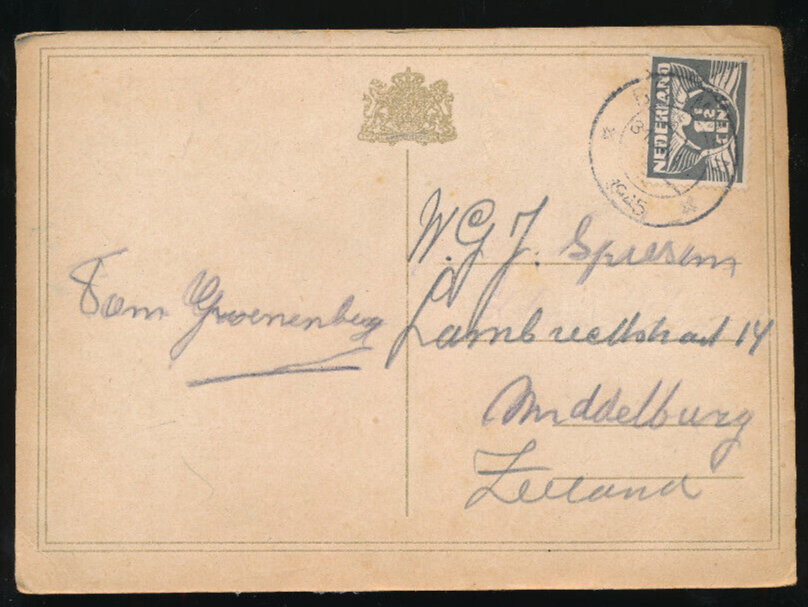 Fam Groenenberg
W. G J. Spiesem
Lambrechtstraat 14
Middelburg
Zeeland
NEDERLAND
1½
CENT
1945